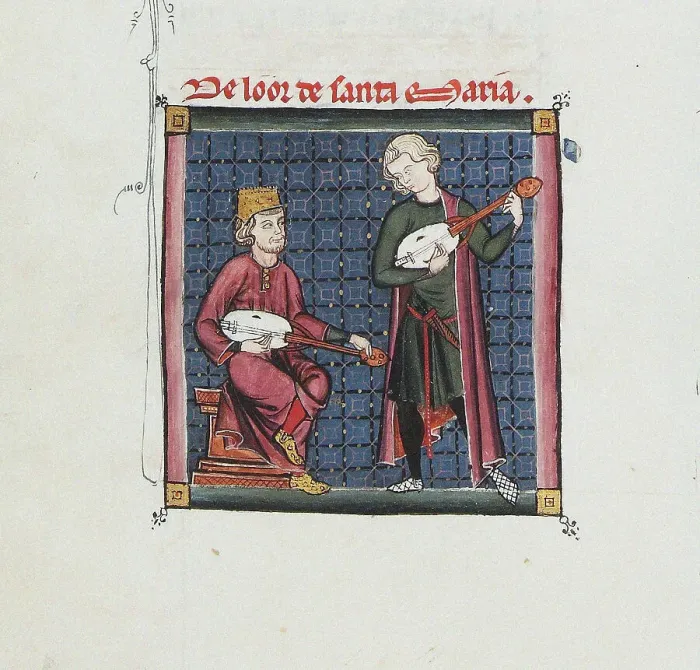 De loor de santa Maria.